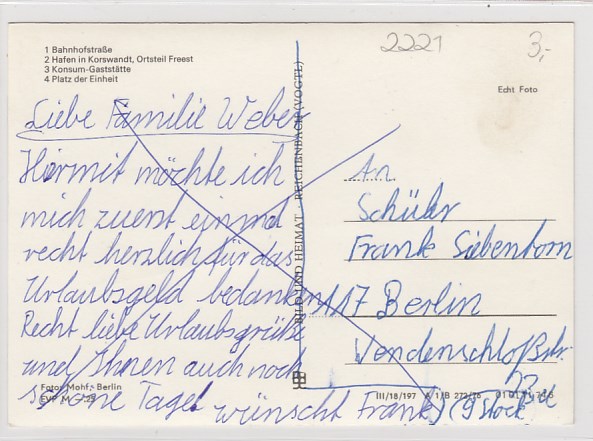 2221
3,-
1 Bahnhofstraße
2 Hafen in Korswandt, Ortsteil Freest
3 Konsum-Gaststätte
4 Platz der Einheit
Echt Foto
Liebe Familie Weber
Hiermit möchte ich
mich zuerst einmal
recht herzlich für das
Urlaubsgeld bedanken
Recht liebe Urlaubsgrüße
und Ihnen auch noch
schöne Tage
wünscht Frank
BILD UND HEIMAT REICHENBACH (VOGTL)
An
Schüler
Frank Siebenhorn
117 Berlin
Wendenschloßstr.
(9 Stock)
Foto: Mohr, Berlin
EVP M -,25
III/18/197 A 1/B 272/76